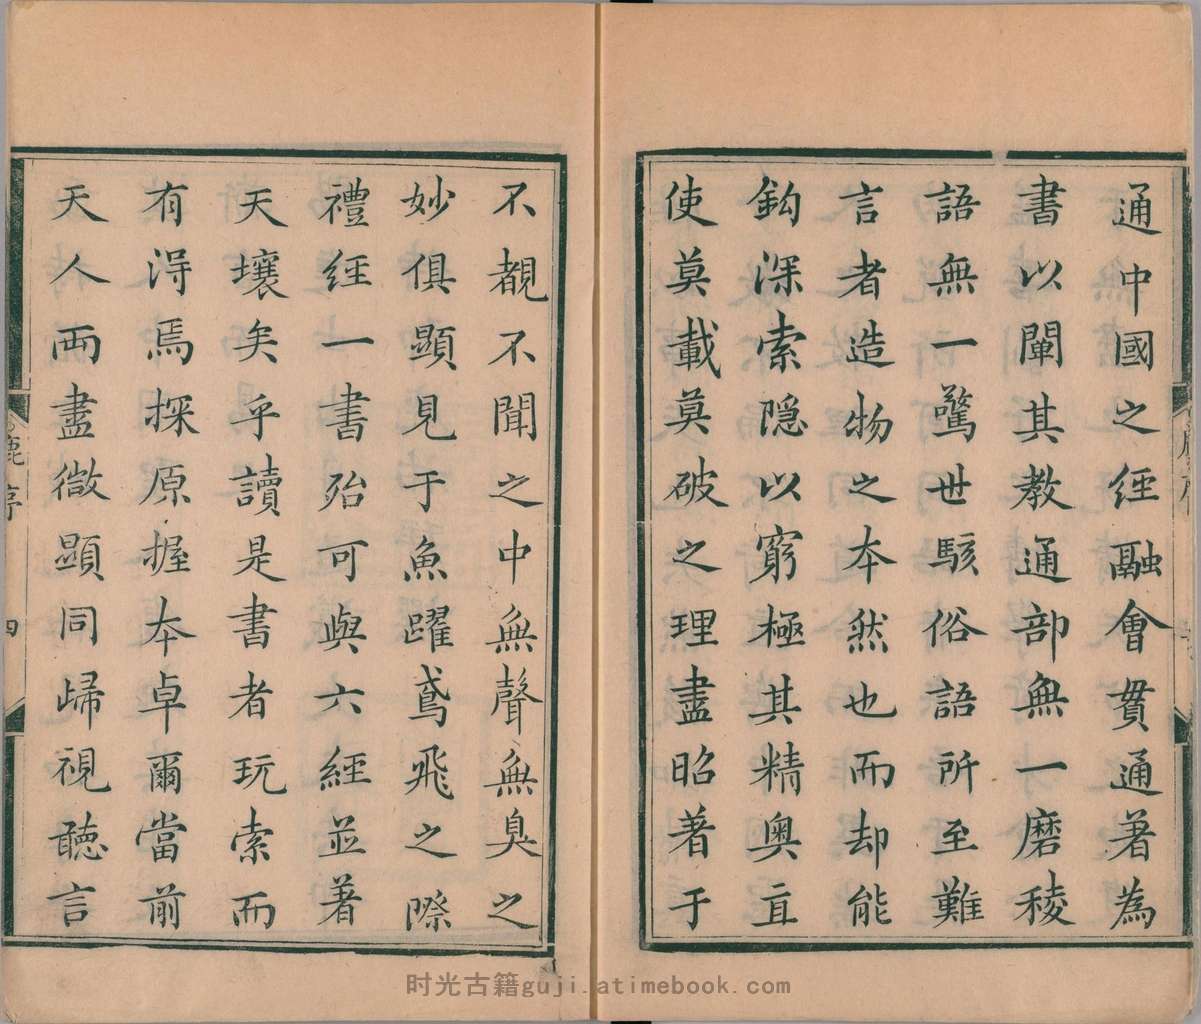 通中國之經融會貫通著為
書以闡其教通部無一磨稜
語無一驚世駭俗語所至難
言者造物之本然也而却能
鈎深索隱以窮極其精奥亘
使莫載莫破之理盡昭著于
不覩不聞之中無聲無臭之
妙俱顯見于魚躍鳶飛之際
禮經一書殆可與六經並著
天壤矣乎讀是書者玩索而
有淂焉探原握本卓爾當前
天人兩盡微顯同歸視聽言
四
时光古籍guji.atimebook.com